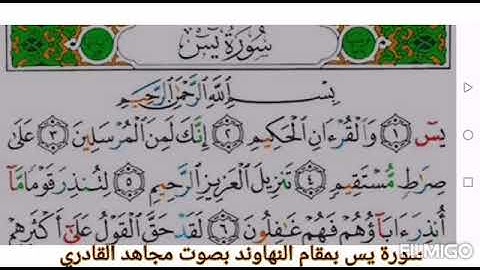 سُورَةُ يسٓ
بِسْمِ ٱللَّهِ ٱلرَّحْمَٰنِ ٱلرَّحِيمِ
يسٓ ١ وَٱلْقُرْءَانِ ٱلْحَكِيمِ ٢ إِنَّكَ لَمِنَ ٱلْمُرْسَلِينَ ٣ عَلَىٰ
صِرَٰطٍ مُّسْتَقِيمٍ ٤ تَنزِيلَ ٱلْعَزِيزِ ٱلرَّحِيمِ ٥ لِتُنذِرَ قَوْمًا مَّآ
أُنذِرَ ءَابَآؤُهُمْ فَهُمْ غَٰفِلُونَ ٦ لَقَدْ حَقَّ ٱلْقَوْلُ عَلَىٰٓ أَكْثَرِهِمْ
FILMIGO
سورة يس بمقام النهاوند بصوت مجاهد القادري